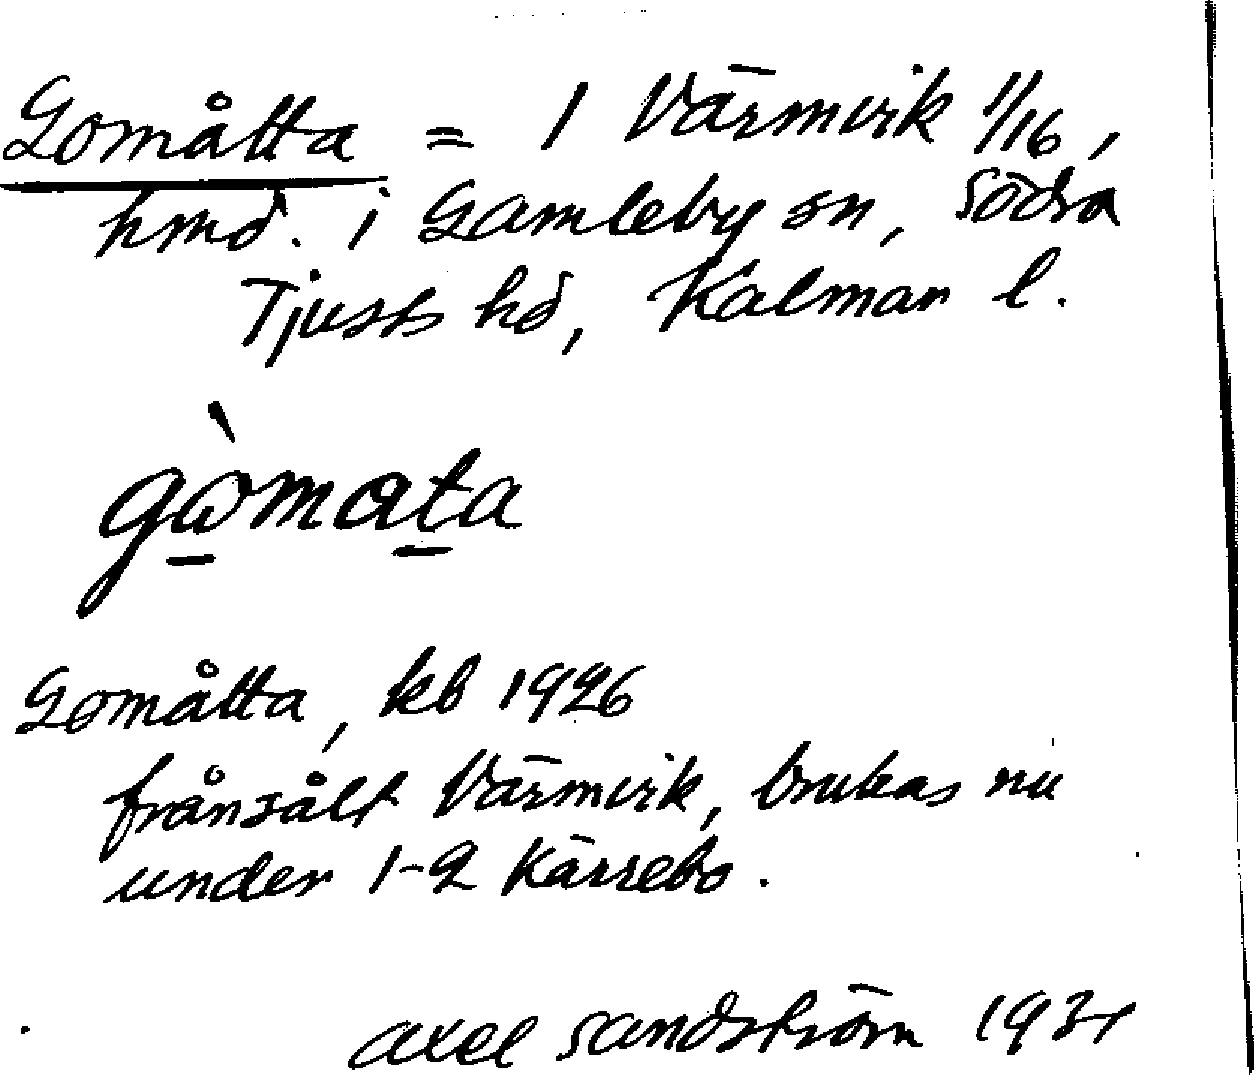 Gomåtta = 1 Värmvik 1/16,
hmd. i Gamleby sn, Södra
Tjusts hd, Kalmar l.
gòmata
Gomåtta, kb 1926
frånsålt Värmvik, brukas nu
under 1-2 Kärrebo.
Axel Sandström 1931